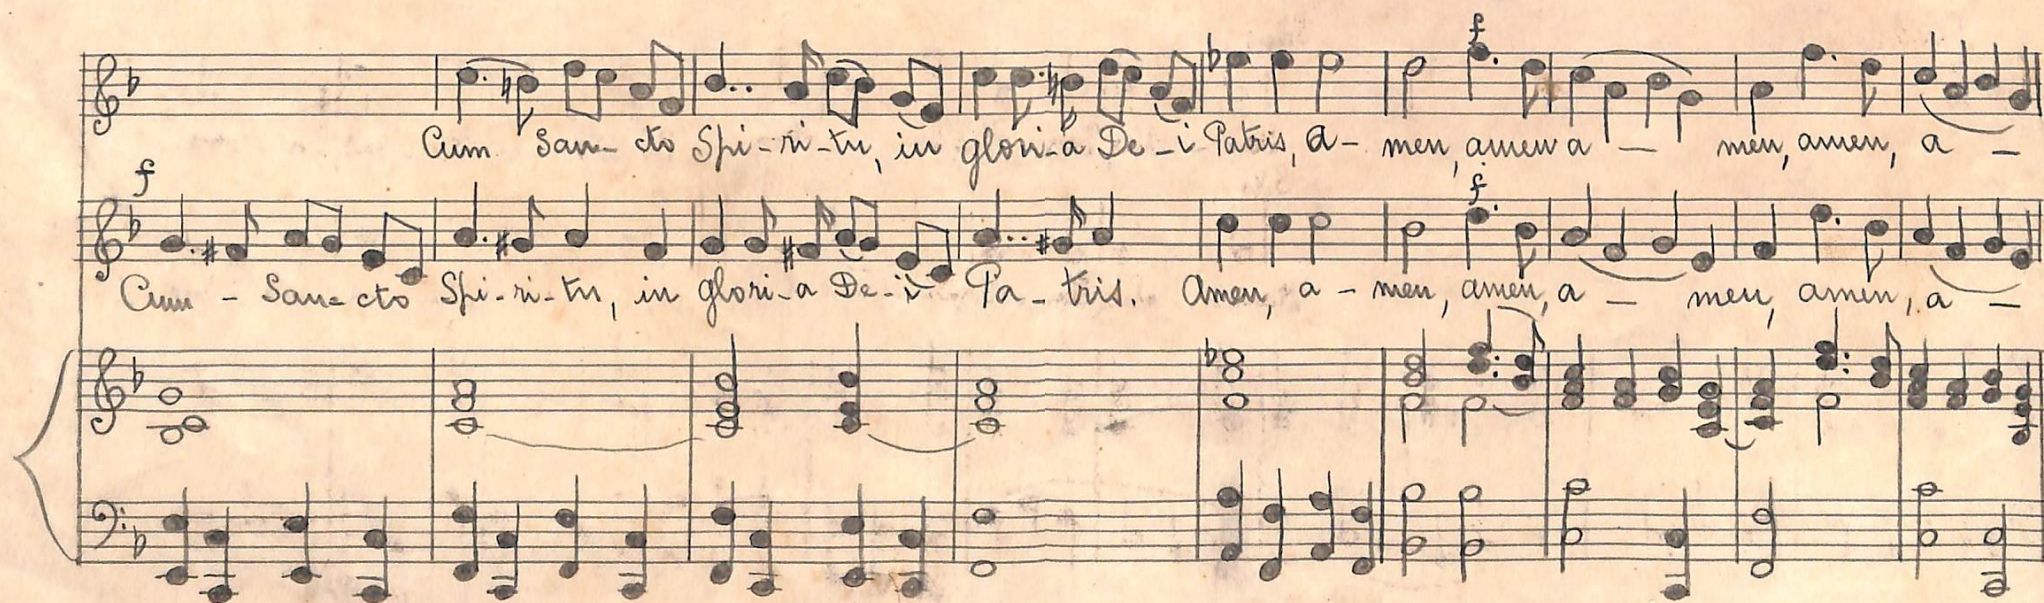 f
Cum San- cto Spi-ri-tu, in glori-a De-i Patris, a- men, amen a — men, amen, a —
f f
Cum - San- cto Spi-ri-tu, in glori-a De-i Pa-tris. Amen, a-men, amen, a — men, amen, a —